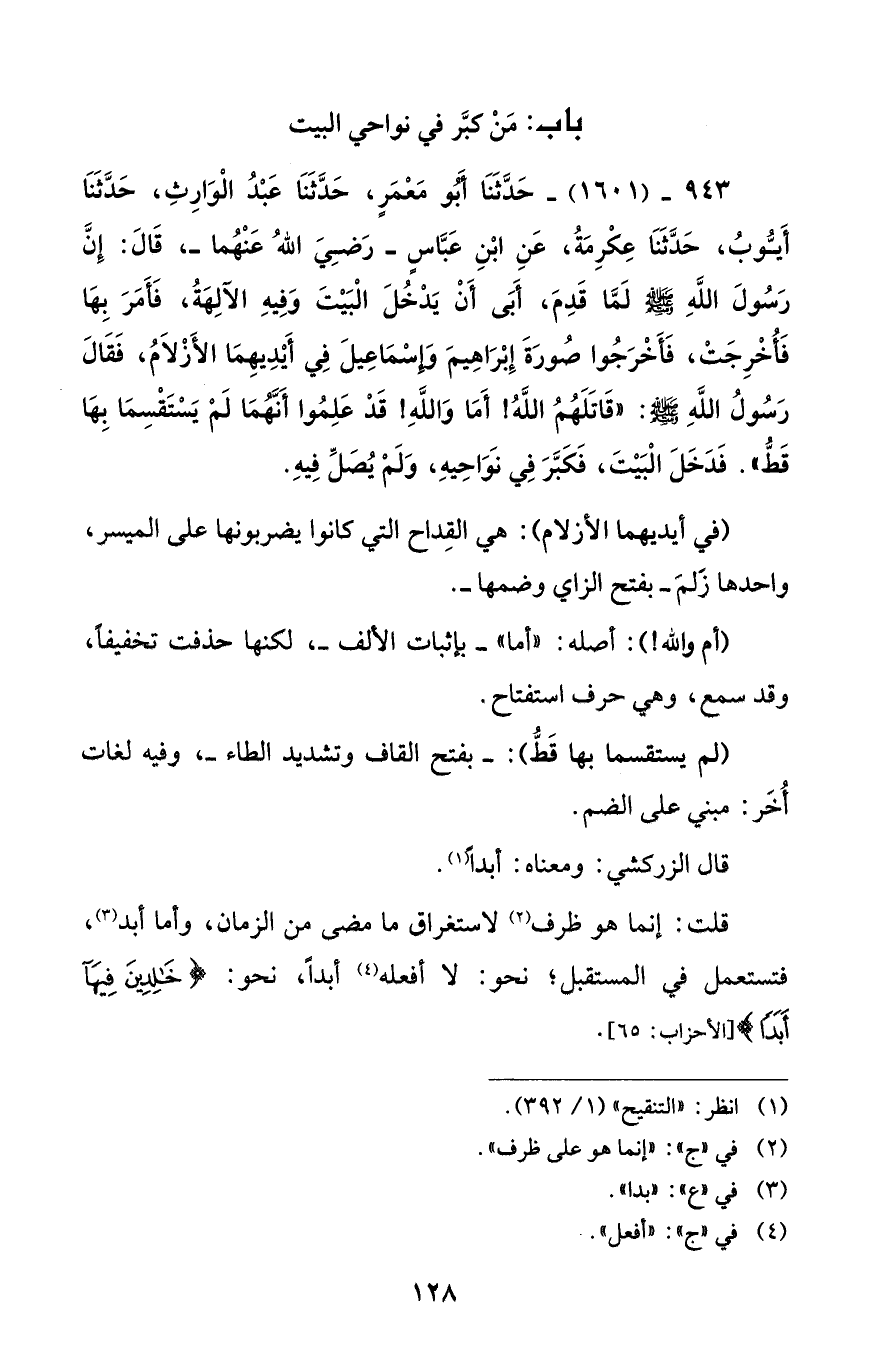 باب: مَنْ كبَّر في نواحي البيت
٩٤٣ ـ (١٦٠١) ـ حَدَّثَنَا أَبُو مَعْمَرٍ، حَدَّثَنَا عَبْدُ الْوَارِثِ، حَدَّثَنَا
أَيُّوبُ، حَدَّثَنَا عِكْرِمَةُ، عَنِ ابْنِ عَبَّاسٍ ـ رَضِيَ اللهُ عَنْهُما ـ، قَالَ: إِنَّ
رَسُولَ اللَّهِ ﷺ لَمَّا قَدِمَ، أَبَى أَنْ يَدْخُلَ الْبَيْتَ وَفِيهِ الآلِهَةُ، فَأَمَرَ بِهَا
فَأُخْرِجَتْ، فَأَخْرَجُوا صُورَةَ إِبْرَاهِيمَ وَإِسْمَاعِيلَ فِي أَيْدِيهِمَا الأَزْلاَمُ، فَقَالَ
رَسُولُ اللَّهِ ﷺ: «قَاتَلَهُمُ اللَّهُ! أَمَا وَاللَّهِ! قَدْ عَلِمُوا أَنَّهُمَا لَمْ يَسْتَقْسِمَا بِهَا
قَطُّ». فَدَخَلَ الْبَيْتَ، فَكَبَّرَ فِي نَوَاحِيهِ، وَلَمْ يُصَلِّ فِيهِ.
(في أيديهما الأزلام): هي القِداح التي كانوا يضربونها على الميسر،
واحدها زَُلمَ ـ بفتح الزاي وضمها ـ.
(أم والله!): أصله: «أما» ـ بإثبات الألف ـ، لكنها حذفت تخفيفاً،
وقد سمع، وهي حرف استفتاح.
(لم يستقسما بها قَطُّ): ـ بفتح القاف وتشديد الطاء ـ، وفيه لغات
أُخَر: مبني على الضم.
قال الزركشي: ومعناه: أبداً(١).
قلت: إنما هو ظرف(٢) لاستغراق ما مضى من الزمان، وأما أبد(٣)،
فتستعمل في المستقبل؛ نحو: لا أفعله(٤) أبداً، نحو: ﴿خَٰلِدِينَ فِيهَآ
أَبَدٗا﴾[الأحزاب: ٦٥].
(١) انظر: «التنقيح» (١/ ٣٩٢).
(٢) في «ج»: «إنما هو على ظرف».
(٣) في «ع»: «بدا».
(٤) في «ج»: «أفعل».
١٢٨